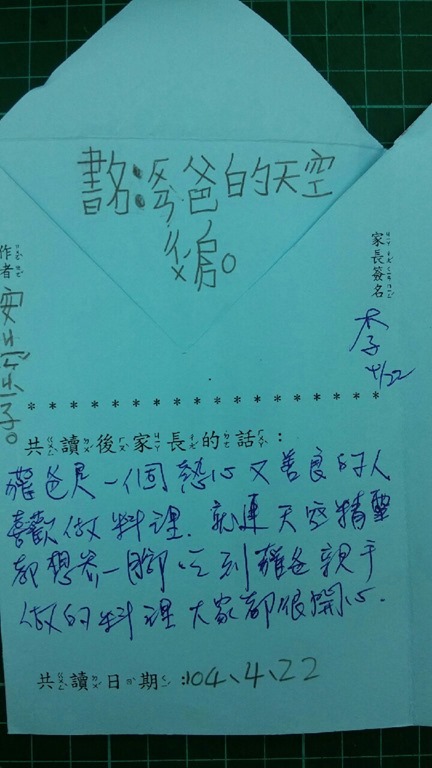 書名:ㄌㄨㄛˊ爸爸的天空
作者
安
子。
家長簽名
李
4/22
共讀後家長的話:
蘿爸是一個熱心又善良的人
喜歡做料理.就連天空精靈
都想參一腳.吃到蘿爸親手
做的料理大家都很開心.
共讀日期:104、4、22